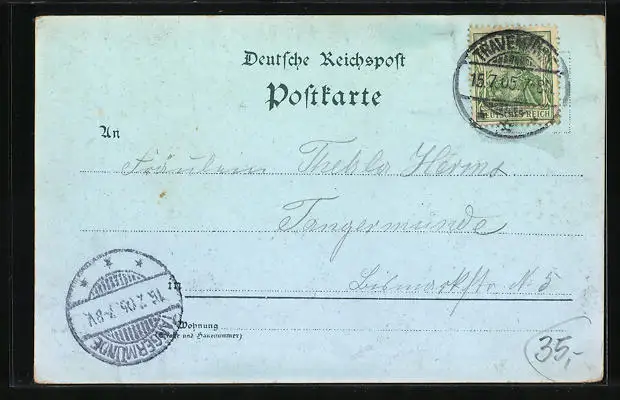 Deutsche Reichspost
Postkarte
TRAVEMÜNDE
15.7.05.
DEUTSCHES REICH
An
Fräulein Thekla Herms
Tangermünde
in
Bismarckstr. N. 5
Wohnung
(Straße und Hausnummer)
15.7.05.7-8V.
TANGERMÜNDE
35,-